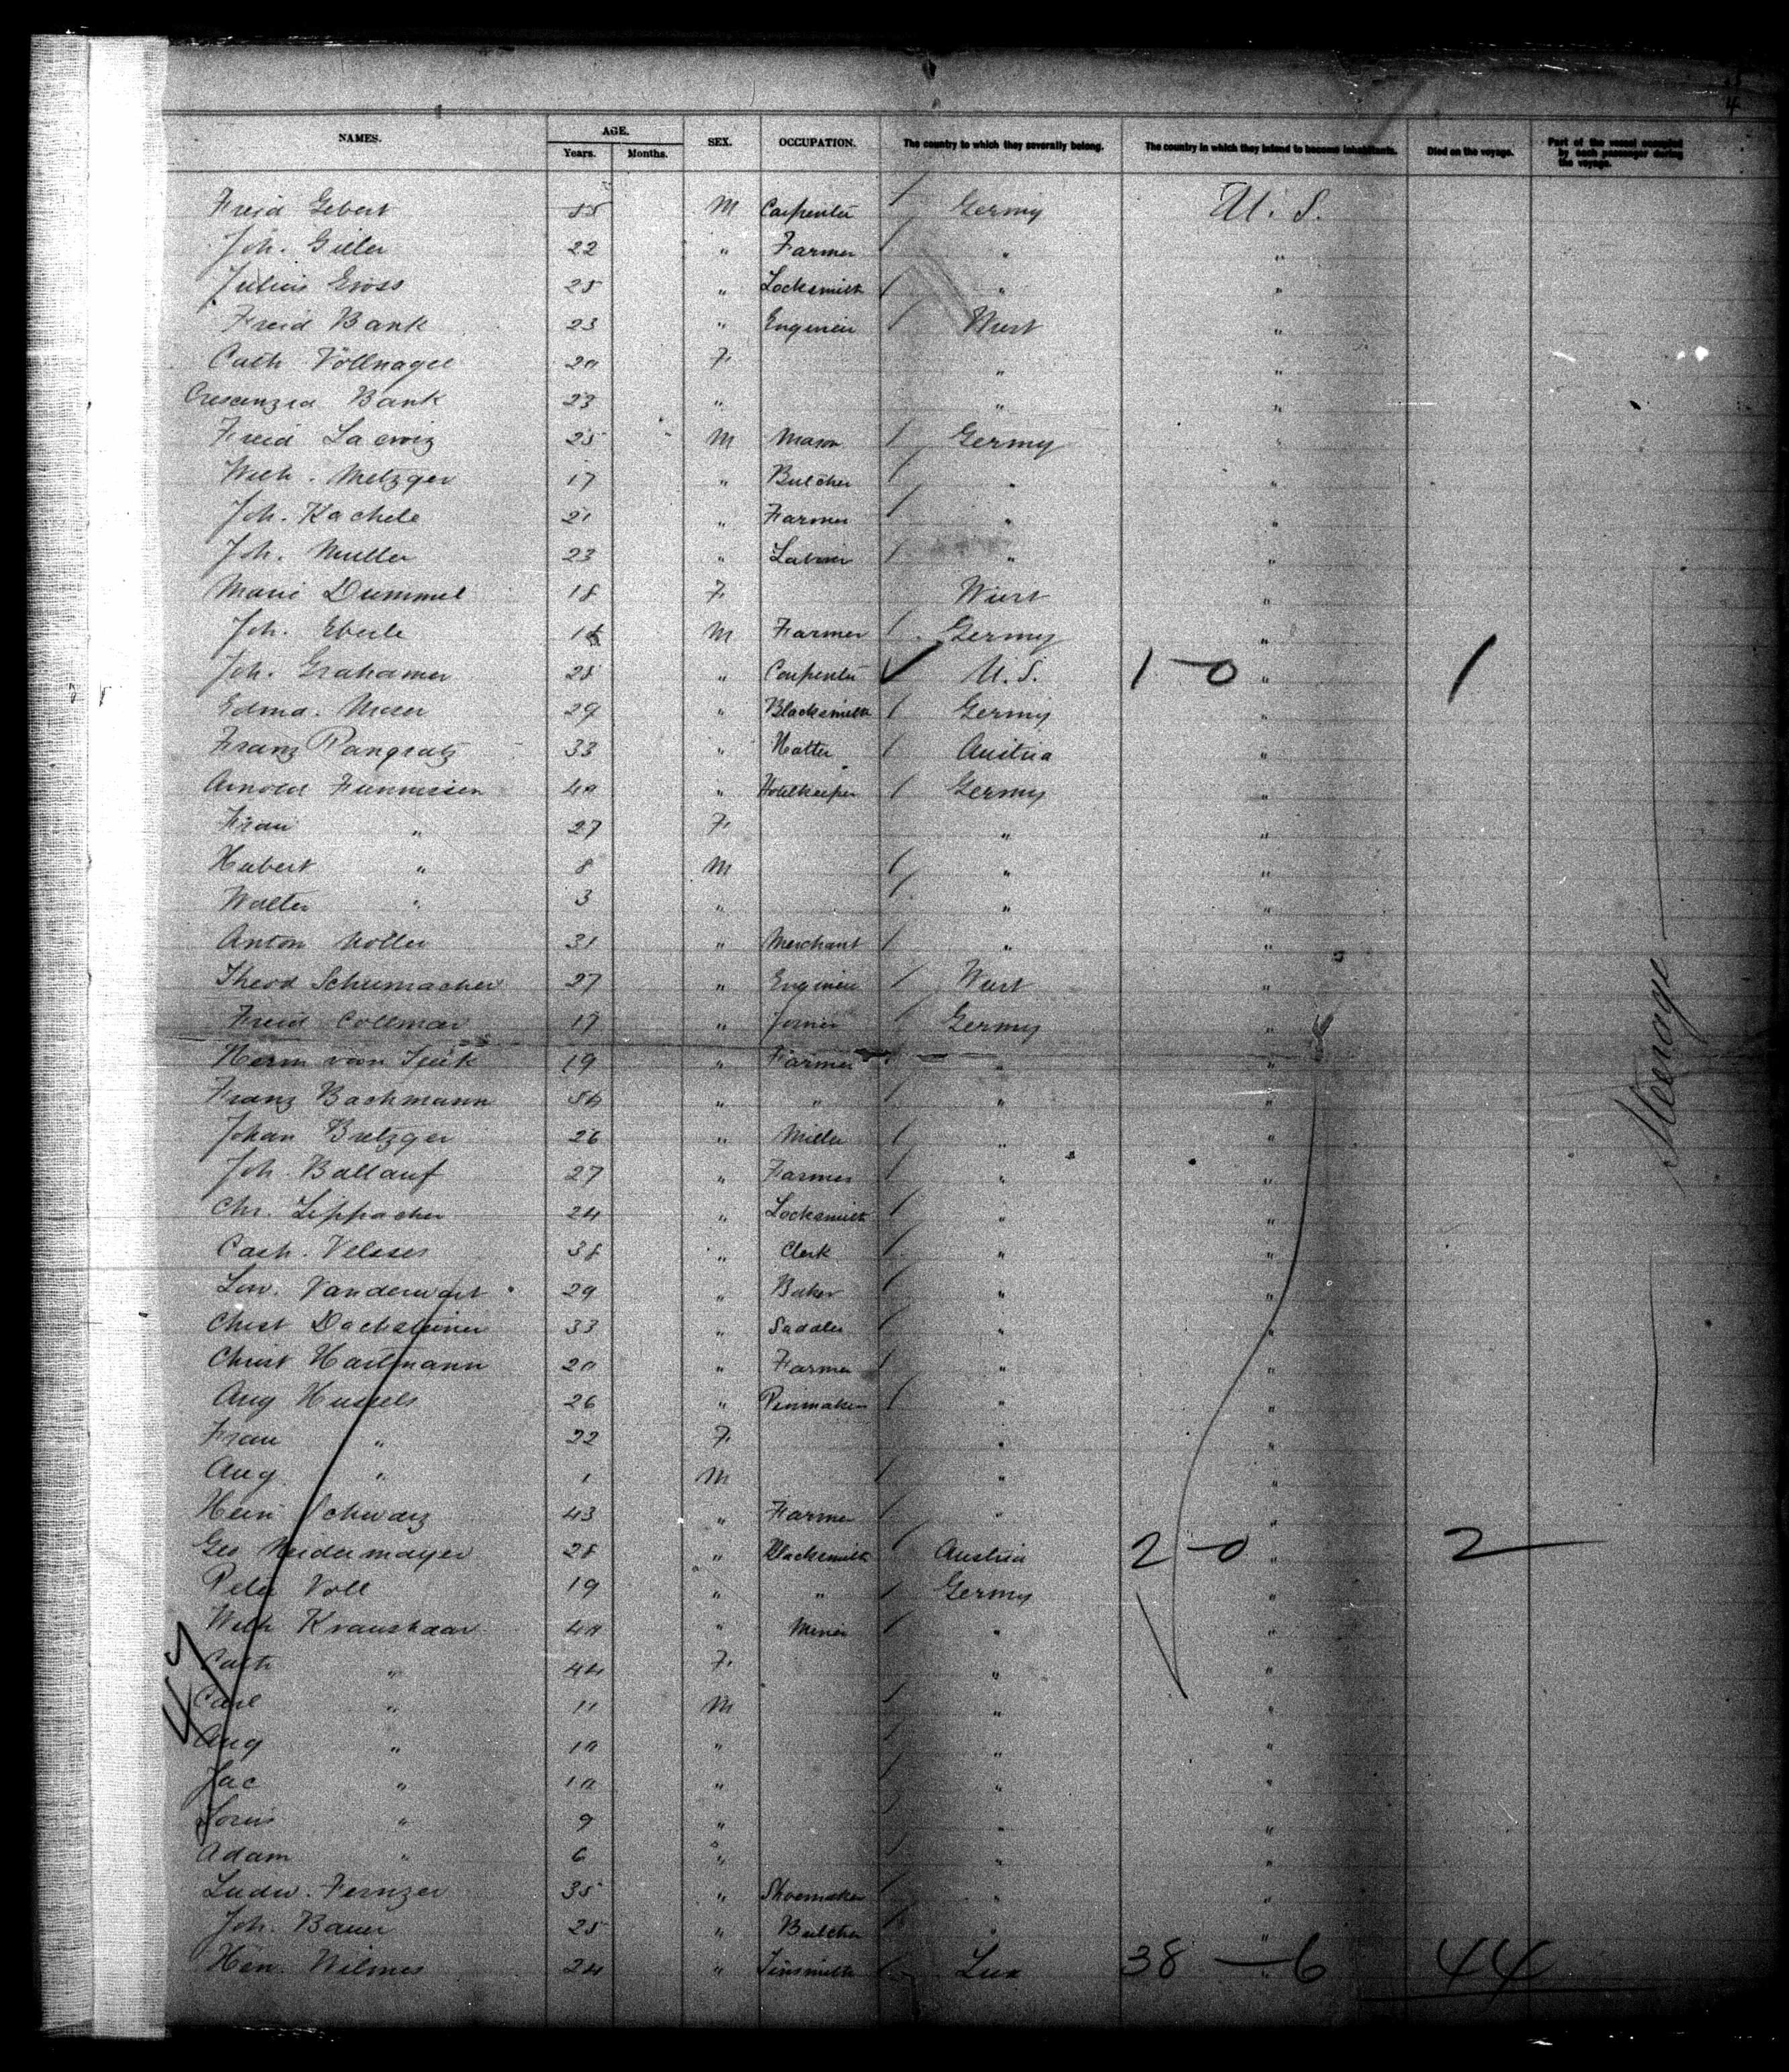 4
NAMES. AGE. SEX. OCCUPATION. The country to which they severally belong. The country in which they intend to become inhabitants. Died on the voyage. Part of the vessel occupied by each passenger during the voyage.
Years. Months.
Freid Gebert 55 M Carpenter Germy U. S.
Joh. Gieler 22 " Farmer " "
Julius Gross 25 " Locksmith " "
Freid Bank 23 " Enginieu Wurt "
Cath Vollnagel 20 F. " "
Crescenzia Bank 23 " " "
Freid Lacroiz 25 M Mason Germy "
Wilh. Metzger 17 " Butcher " "
Joh. Kachele 21 " Farmer " "
Joh. Muller 23 " Laborer " "
Marie Dummel 18 F. Wurt "
Joh. Eberle M Farmer Germy "
Joh. Grahamer 25 " Carpenter U. S. 1-0 " 1
Edmd. Moser 29 " Blacksmith Germy "
Franz Pangratz 33 " Hatter Austria "
Arnold 40 " Hotelkeeper Germy "
Frau " 27 F. " "
Hubert " 8 M " "
Walter " 3 " " "
Anton Moller 31 " Merchant " "
Theod Schumacher 27 " Enginieu Wurt "
Freid Collmar 17 " Joiner Germy "
Herm von 19 " Farmer " "
Franz Bachmann 54 " " " "
Johan Bretzger 26 " Miller " "
Joh. Ballauf 27 " Farmer " "
Chr. Lippacher 24 " Locksmith " "
Cash. Velsses 38 " Clerk " "
Low. Vanderwart 29 " Baker " "
Christ Dachsteiner 33 " Saddler " "
Christ Hartmann 20 " Farmer " "
Aug Hussels 26 " Penmaker " "
Frau " 22 F. " "
Aug " 1 M " "
Hein Schwarz 43 " Farmer " "
Geo Niedermayer 28 " Blacksmith Austria 2-0 " 2
Peter Voll 19 " " Germy "
Wilh Kraushaar 40 " Miner " "
Cath " 44 F. " "
Carl " 11 M " "
Aug " 10 " " "
Jac " 10 " " "
Louis " 9 " " "
Adam " 6 " " "
Ludw. Fernzer 35 " Shoemaker " "
Joh. Bauer 25 " Butcher " "
Hen. Wilmes 24 " Tinsmith Lux 38-6 " 44
Steerage
47